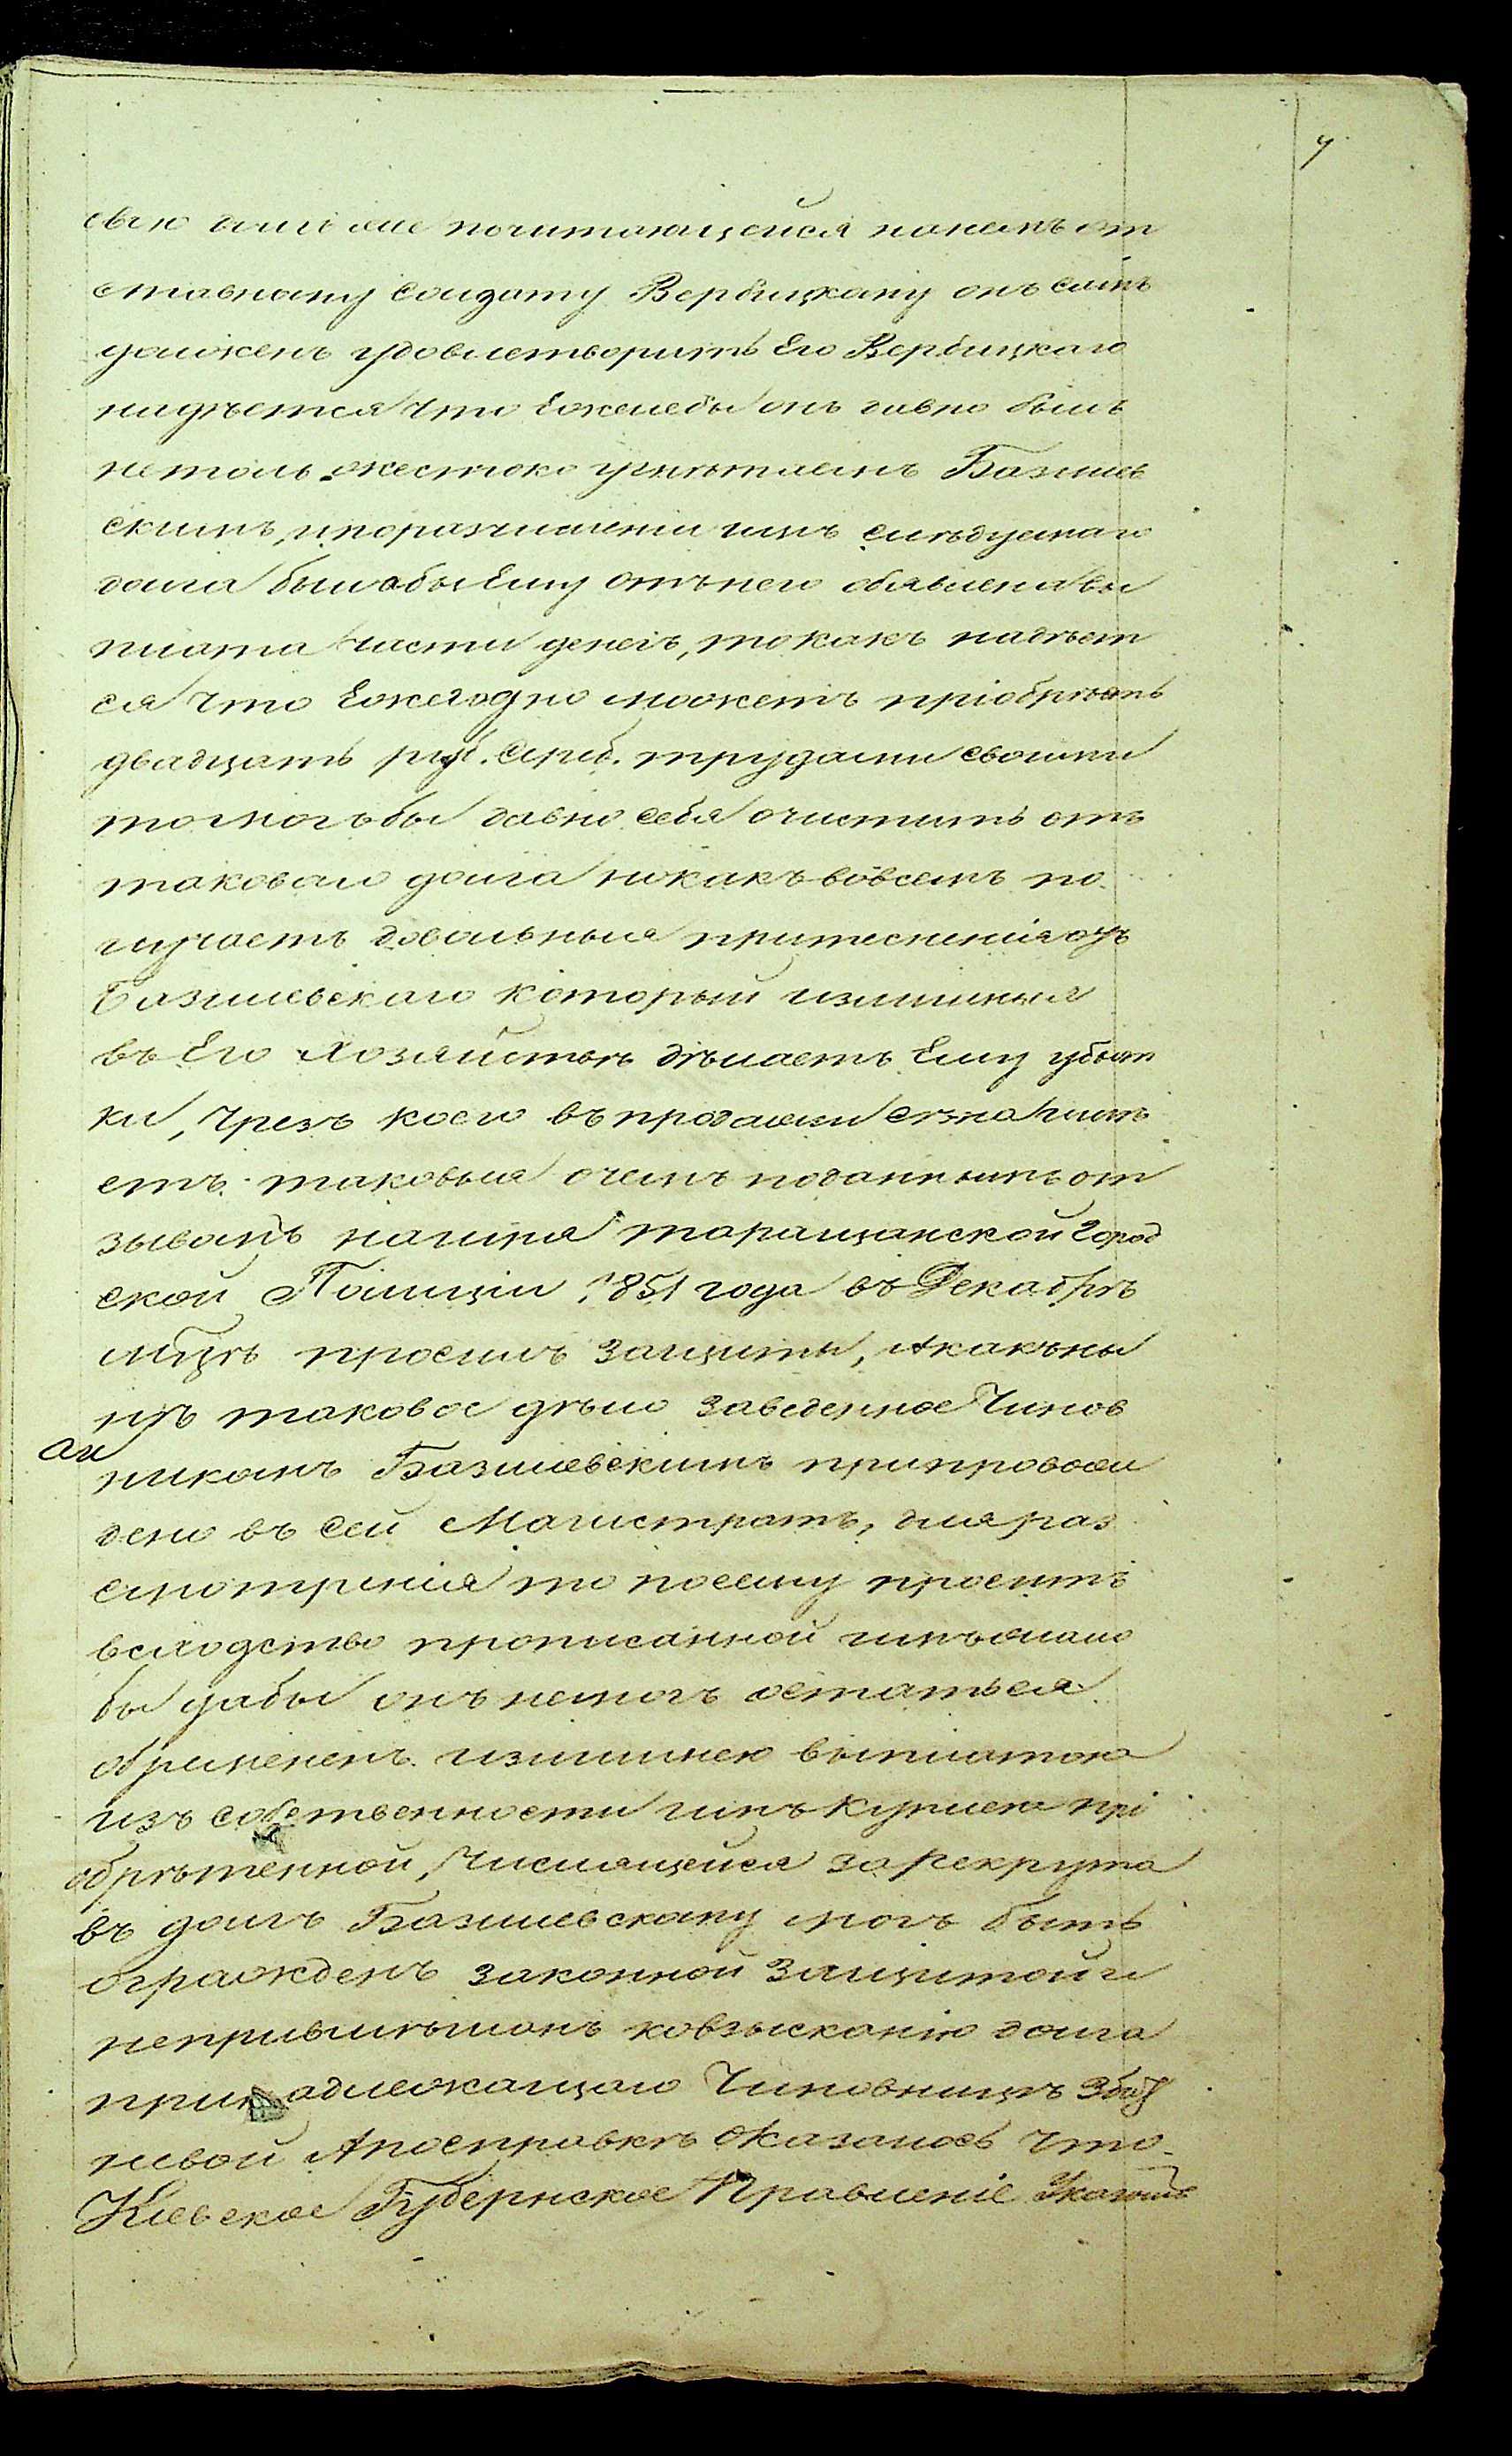 сью долгъ же почитающейся нанемъ от
ставному солдату Вербицкому онъ самъ
долженъ удовлетворить Его Вербицкаго
надѣется что Ежелебы онъ давно былъ
нетоль жестоко угнѣтаемъ Базилев
скимъ, поразчисленіи имъ слѣдуемаго
долга былабы Ему отънего объявлена вы
плата части денегъ, то какъ надѣет
ся что Ежегодно можетъ пріобрѣсть
двадцать руб. сереб. трудами своими
то могъ бы давно себя очистить отъ
таковаго долга но какъ вовсемъ по
лучаетъ довольныя притесненія отъ
Базилевскаго который излишныя
въ Его Хозяйствѣ дѣлаетъ Ему убыт
ки, чрезъ коего въ продажи
етъ таковыя очемъ поданнымъ от
зывомъ наимя таращанской Город
ской Полиціи 1851 года въ Декабрѣ
мцѣ просилъ защиты, Акакъ ны
нѣ таковое дѣло заведенное Чинов
никомъ Базилевскимъ припровож
дено въ сей Магистратъ, для раз
смотрѣнія то посему проситъ
вслюдство прописанной имъ жало
бы дабы онъ немогъ остаться
обремененъ излишнею выплатою
изъ собственности имъ куплею прі
обрѣтенной, Числящейся за рекрута
въ долгъ Базилевскому могъ быть
огражденъ законной защитой и
непривлѣченъ ковзысканію долга
принадлежащаго Чиновницѣ Збаж
невой Апосправкѣ оказалось что
Кіевское Губернское Правленіе Указомъ